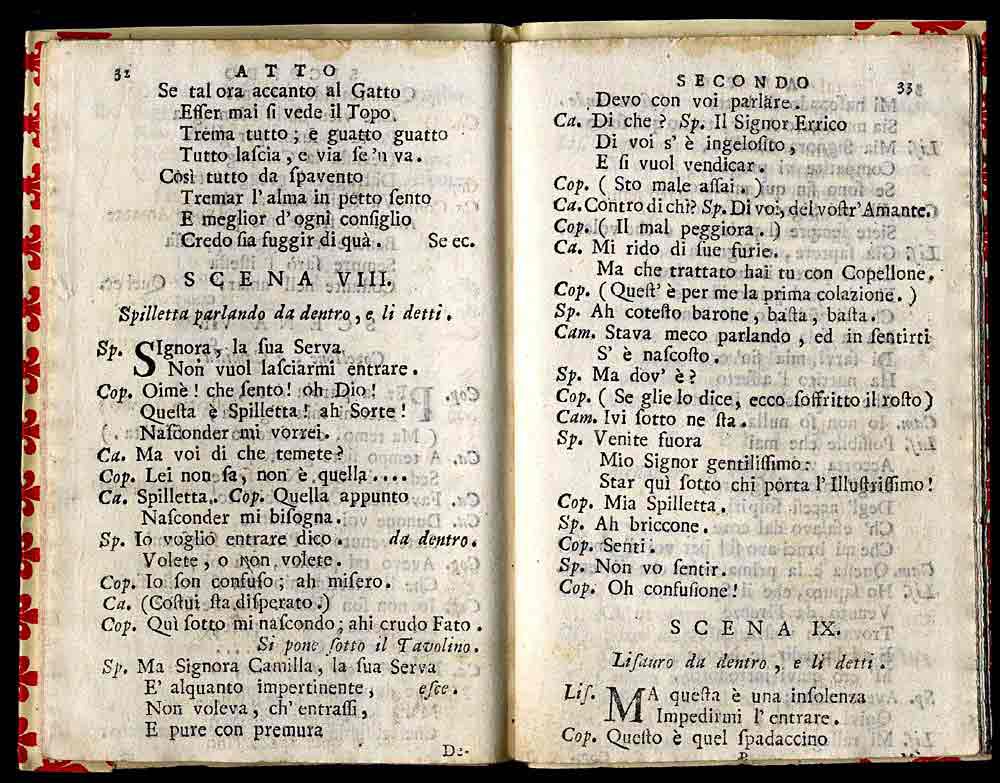 32 ATTO
Se tal ora accanto al Gatto
Eſſer mai ſi vede il Topo,
Trema tutto; e guatto guatto
Tutto laſcia, e via ſe 'n va.
Così tutto da ſpavento
Tremar l'alma in petto ſento
E meglior d'ogni conſiglio
Credo ſia fuggir di quà. Se ec.
SCENA VIII.
Spilletta parlando da dentro, e li detti.
Sp. SIgnora, la ſua Serva
Non vuol laſciarmi entrare.
Cop. Oimè! che ſento! oh Dio!
Queſta è Spilletta! ah Sorte!
Naſconder mi vorrei.
Ca. Ma voi di che temete?
Cop. Lei non ſa, non è quella....
Ca. Spilletta. Cop. Quella appunto
Naſconder mi biſogna.
Sp. Io voglio entrare dico. da dentro.
Volete, o non volete.
Cop. Io ſon confuſo; ah miſero.
Ca. (Coſtui ſta diſperato.)
Cop. Quì ſotto mi naſcondo; ahi crudo Fato.
Si pone ſotto il Tavolino.
Sp. Ma Signora Camilla, la ſua Serva
E' alquanto impertinente, eſce.
Non voleva, ch'entraſſi,
E pure con premura
De-
SECONDO 33
Devo con voi parlare.
Ca. Di che? Sp. Il Signor Errico
Di voi s'è ingeloſito,
E ſi vuol vendicar.
Cop. (Sto male aſſai.)
Ca. Contro di chi? Sp. Di voi, del voſtr'Amante.
Cop. (Il mal peggiora.)
Ca. Mi rido di ſue furie.
Ma che trattato hai tu con Copellone.
Cop. (Queſt'è per me la prima colazione.)
Sp. Ah coteſto barone, baſta, baſta.
Cam. Stava meco parlando, ed in ſentirti
S'è naſcoſto.
Sp. Ma dov'è?
Cop. (Se glie lo dice, ecco ſoffritto il roſto)
Cam. Ivi ſotto ne ſta.
Sp. Venite fuora
Mio Signor gentiliſſimo:
Star quì ſotto chi porta l'Illuſtriſſimo!
Cop. Mia Spilletta.
Sp. Ah briccone.
Cop. Senti.
Sp. Non vo ſentir.
Cop. Oh confuſione!
SCENA IX.
Liſauro da dentro, e li detti.
Liſ. MA queſta è una inſolenza
Impedirmi l'entrare.
Cop. Queſto è quel ſpadaccino